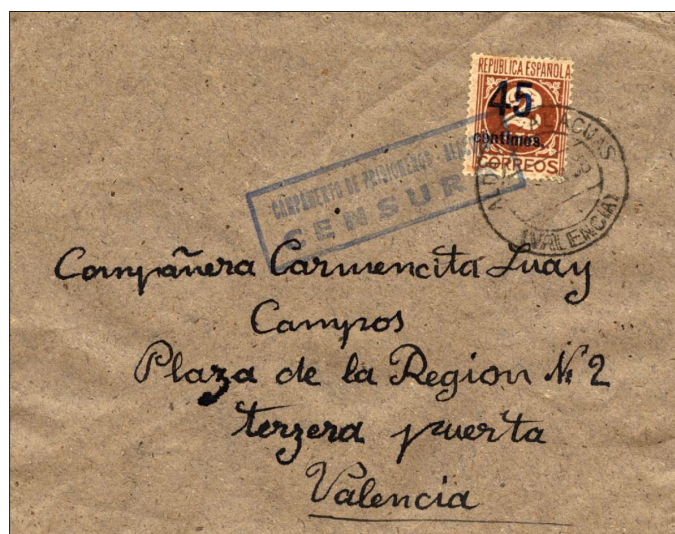 REPUBLICA ESPAÑOLA
45
céntimos.
CORREOS
ALACUAS
(VALENCIA)
CAMPAMENTO DE PRISIONEROS
CENSURA
Compañera Carmencita Luay
Campos
Plaza de la Region Nº 2
terzera puerta
Valencia